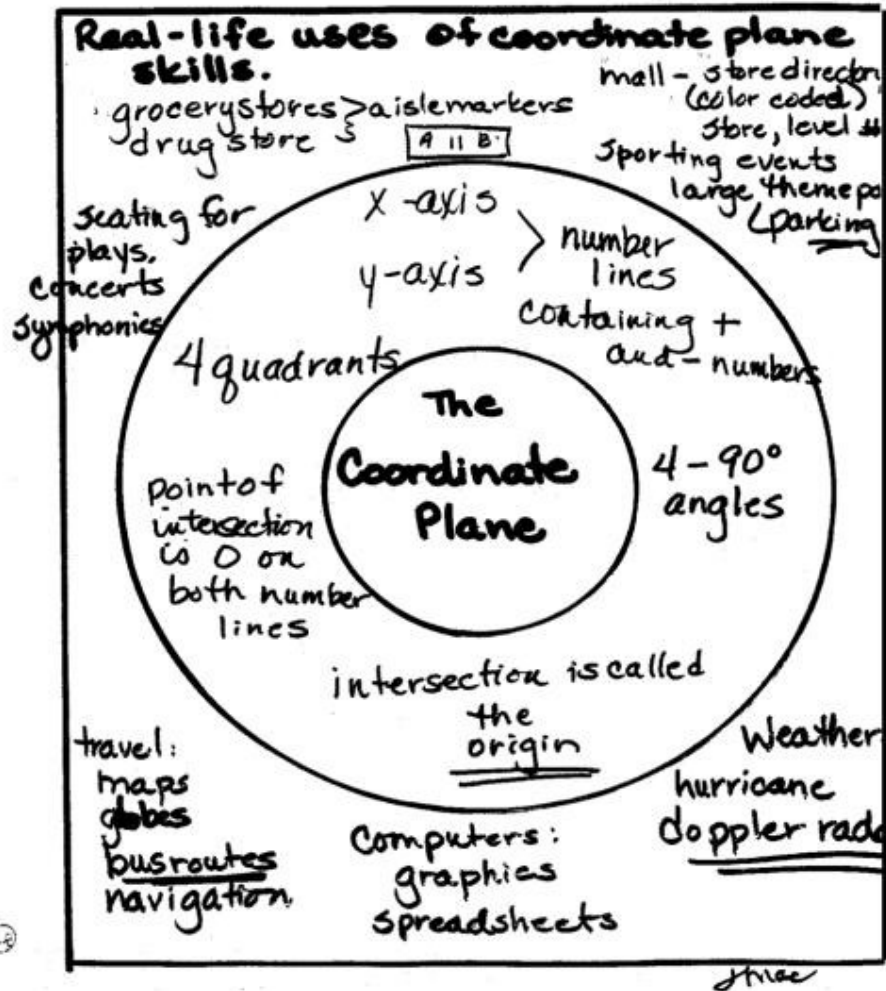 Real-life uses of coordinate plane
skills.
grocery stores > aisle markers
drug store
A 11 B
mall - store director
(color coded)
store, level #
sporting events
large theme pa
parking
seating for
plays,
concerts
symphonies
x-axis
y-axis
number
lines
containing +
and - numbers
4 quadrants
The
Coordinate
Plane
4 - 90°
angles
point of
intersection
is 0 on
both number
lines
intersection is called
the
origin
travel:
maps
globes
bus routes
navigation
Computers:
graphics
spreadsheets
Weather
hurricane
doppler rada